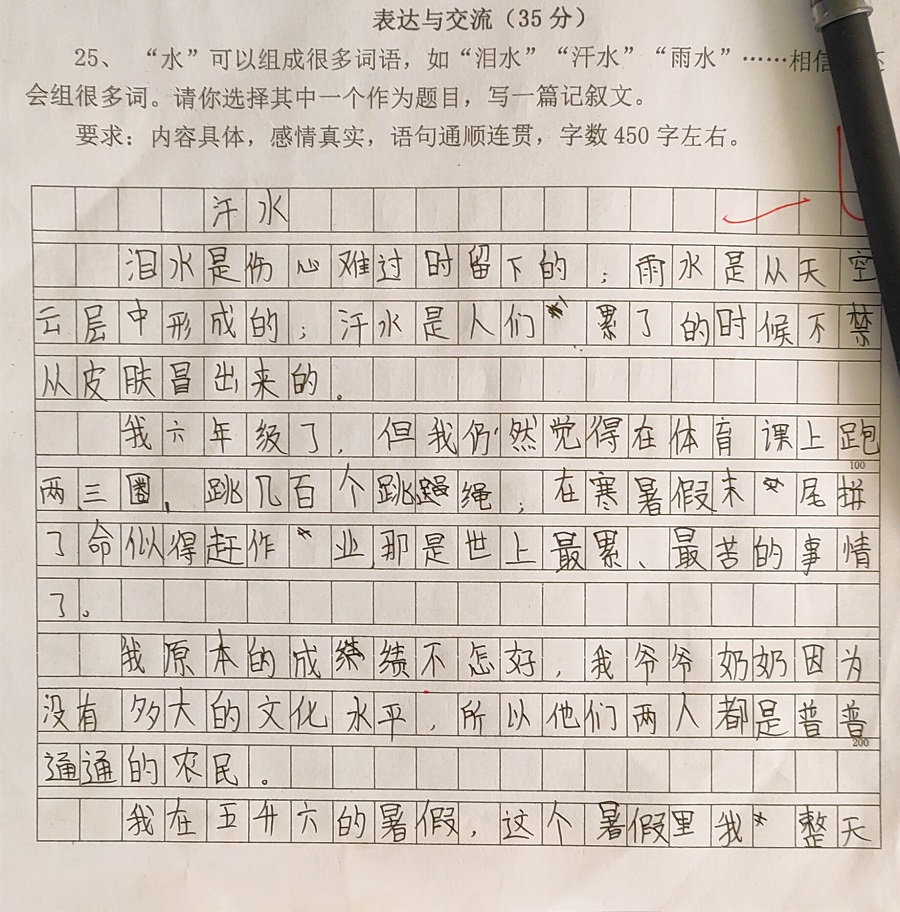 表达与交流（35分）
25、“水”可以组成很多词语，如“泪水”“汗水”“雨水”……相信
会组很多词。请你选择其中一个作为题目，写一篇记叙文。
要求：内容具体，感情真实，语句通顺连贯，字数450字左右。
汗水
泪水是伤心难过时留下的；雨水是从天空
云层中形成的；汗水是人们累了的时候不禁
从皮肤冒出来的。
我六年级了，但我仍然觉得在体育课上跑
100
两三圈，跳几百个跳绳；在寒暑假末尾拼
了命似得赶作业，那是世上最累、最苦的事情
了。
我原本的成绩不怎好，我爷爷奶奶因为
没有多大的文化水平，所以他们两人都是普普
200
通通的农民。
我在五升六的暑假，这个暑假里我整天